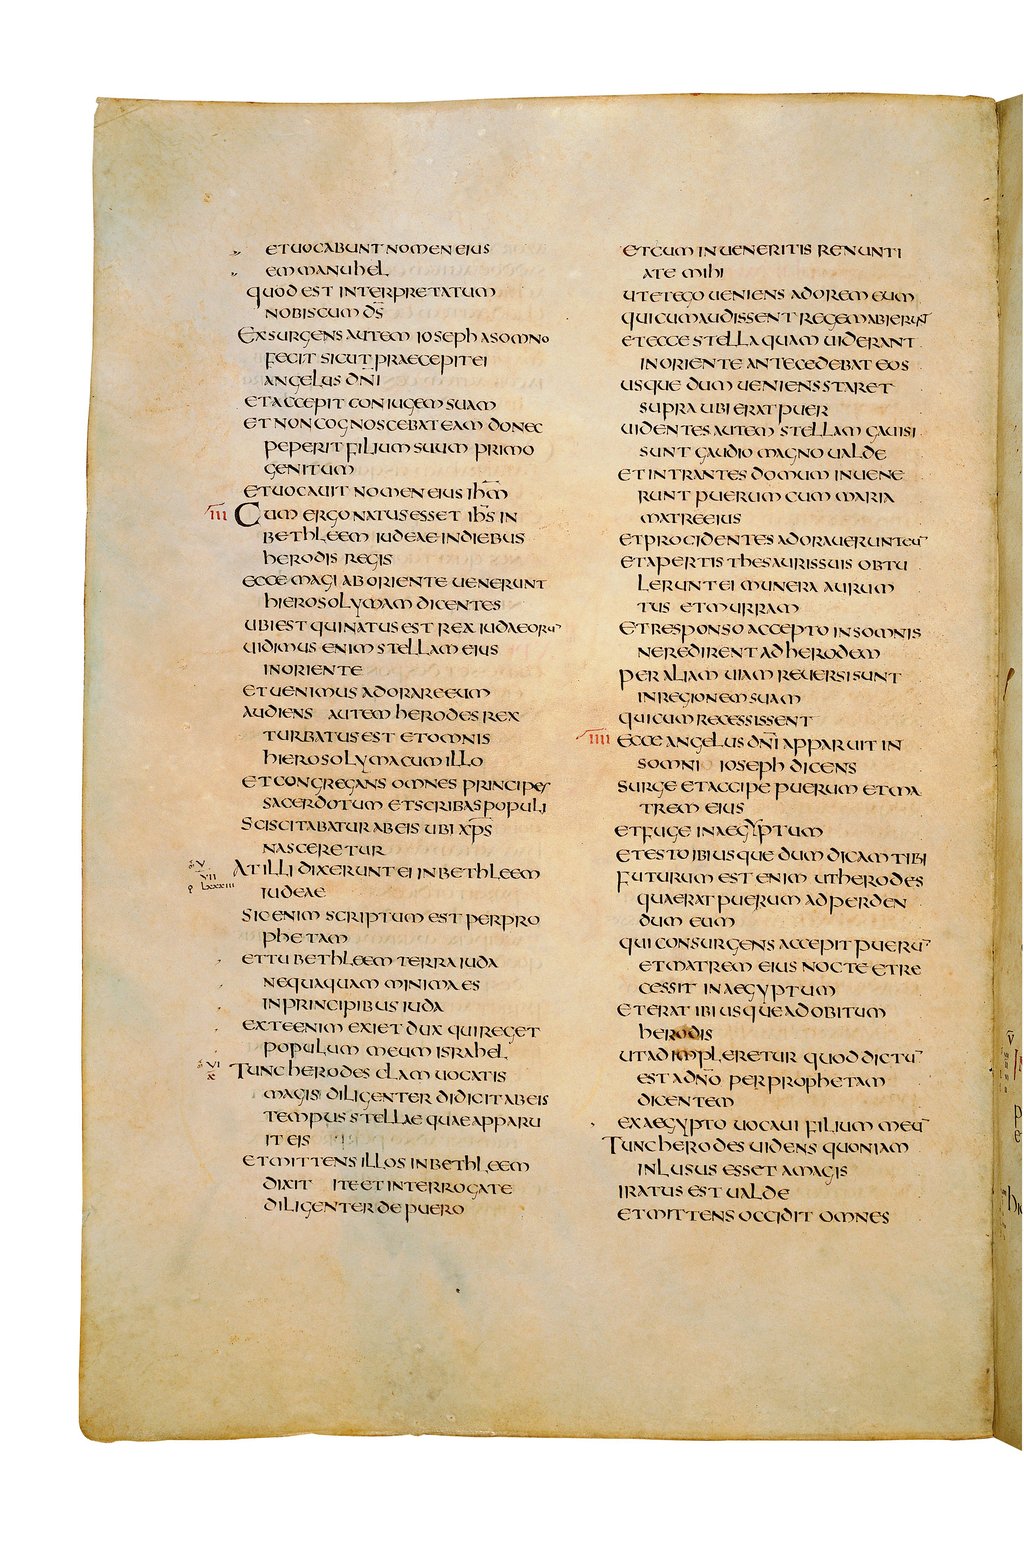 ET UOCABUNT NOMEN EIUS
EMMANUHEL
QUOD EST INTERPRETATUM
NOBISCUM D̅S̅
EXSURGENS AUTEM IOSEPH A SOMNO
FECIT SICUT PRAECEPIT EI
ANGELUS DN̅I
ET ACCEPIT CONIUGEM SUAM
ET NON COGNOSCEBAT EAM DONEC
PEPERIT FILIUM SUUM PRIMO
GENITUM
ET UOCAUIT NOMEN EIUS IHM̅
III CUM ERGO NATUS ESSET IHS̅ IN
BETHLEEM IUDEAE IN DIEBUS
HERODIS REGIS
ECCE MAGI AB ORIENTE UENERUNT
HIEROSOLYMAM DICENTES
UBI EST QUI NATUS EST REX IUDAEORU̅
UIDIMUS ENIM STELLAM EIUS
IN ORIENTE
ET UENIMUS ADORARE EUM
AUDIENS AUTEM HERODES REX
TURBATUS EST ET OMNIS
HIEROSOLYMA CUM ILLO
ET CONGREGANS OMNES PRINCIPES
SACERDOTUM ET SCRIBAS POPULI
SCISCITABATUR AB EIS UBI XPS̅
NASCERETUR
AT ILLI DIXERUNT EI IN BETHLEEM
IUDEAE
SIC ENIM SCRIPTUM EST PER PRO
PHETAM
ET TU BETHLEEM TERRA IUDA
NEQUAQUAM MINIMA ES
IN PRINCIPIBUS IUDA
EX TE ENIM EXIET DUX QUI REGET
POPULUM MEUM ISRAHEL
TUNC HERODES CLAM UOCATIS
MAGIS DILIGENTER DIDICIT AB EIS
TEMPUS STELLAE QUAE APPARU
IT EIS
ET MITTENS ILLOS IN BETHLEEM
DIXIT ITE ET INTERROGATE
DILIGENTER DE PUERO
ET CUM INUENERITIS RENUNTI
ATE MIHI
UT ET EGO UENIENS ADOREM EUM
QUI CUM AUDISSENT REGEM ABIERUNT
ET ECCE STELLA QUAM UIDERANT
IN ORIENTE ANTECEDEBAT EOS
USQUE DUM UENIENS STARET
SUPRA UBI ERAT PUER
UIDENTES AUTEM STELLAM GAUISI
SUNT GAUDIO MAGNO UALDE
ET INTRANTES DOMUM INUENE
RUNT PUERUM CUM MARIA
MATRE EIUS
ET PROCIDENTES ADORAUERUNT EU̅
ET APERTIS THESAURIS SUIS OBTU
LERUNT EI MUNERA AURUM
TUS ET MURRAM
ET RESPONSO ACCEPTO IN SOMNIS
NE REDIRENT AD HERODEM
PER ALIAM UIAM REUERSI SUNT
IN REGIONEM SUAM
QUI CUM RECESSISSENT
IIII ECCE ANGELUS DN̅I APPARUIT IN
SOMNI IOSEPH DICENS
SURGE ET ACCIPE PUERUM ET MA
TREM EIUS
ET FUGE IN AEGYPTUM
ET ESTO IBI USQUE DUM DICAM TIBI
FUTURUM EST ENIM UT HERODES
QUAERAT PUERUM AD PERDEN
DUM EUM
QUI CONSURGENS ACCEPIT PUERU̅
ET MATREM EIUS NOCTE ET RE
CESSIT IN AEGYPTUM
ET ERAT IBI USQUE AD OBITUM
HERODIS
UT ADIMPLERETUR QUOD DICTU̅
EST A DN̅O PER PROPHETAM
DICENTEM
EX AEGYPTO UOCAUI FILIUM MEU̅
TUNC HERODES UIDENS QUONIAM
INLUSUS ESSET A MAGIS
IRATUS EST UALDE
ET MITTENS OCCIDIT OMNES